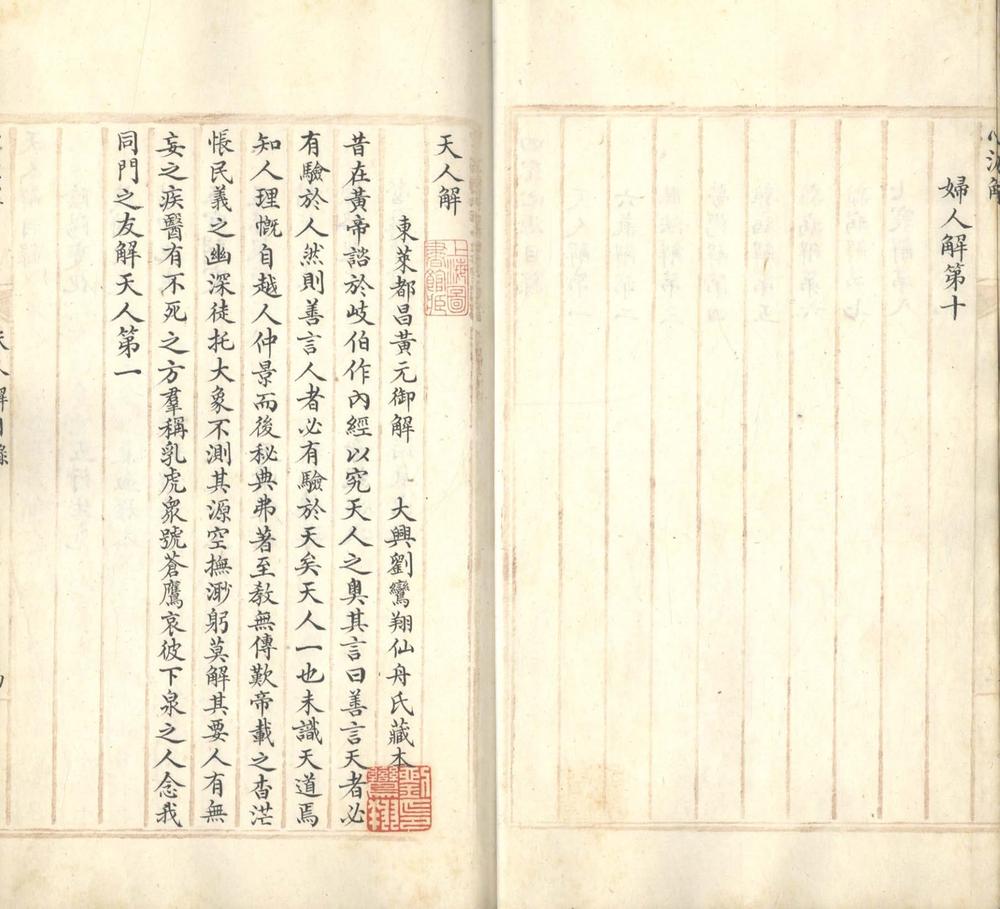 婦人解第十
天人解
東萊都昌黃元御解 大興劉鸞翔仙舟氏藏本
昔在黃帝諮於岐伯作內經以究天人之奧其言曰善言天者必
有驗於人然則善言人者必有驗於天矣天人一也未識天道焉
知人理慨自越人仲景而後秘典弗著至教無傳歎帝載之杳茫
悵民義之幽深徒托大象不測其源空撫渺躬莫解其要人有無
妄之疾醫有不死之方羣稱乳虎衆號蒼鷹哀彼下泉之人念我
同門之友解天人第一
上海圖
書館藏